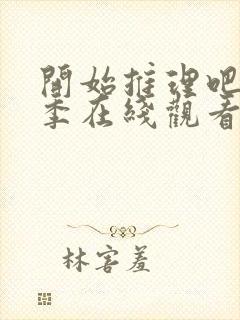 開始推理吧
季在綫觀看
林害羞